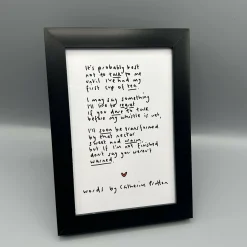 It's probably best
not to talk to me
until I've had my
first cup of tea
I may say something
I'll be regret
if you dare to talk
before my whistle is wet,
I'll soon be transformed
by that nectar
sweet and warm,
but if I'm not finished
don't say you weren't
warned.
words by Catherine Prutton